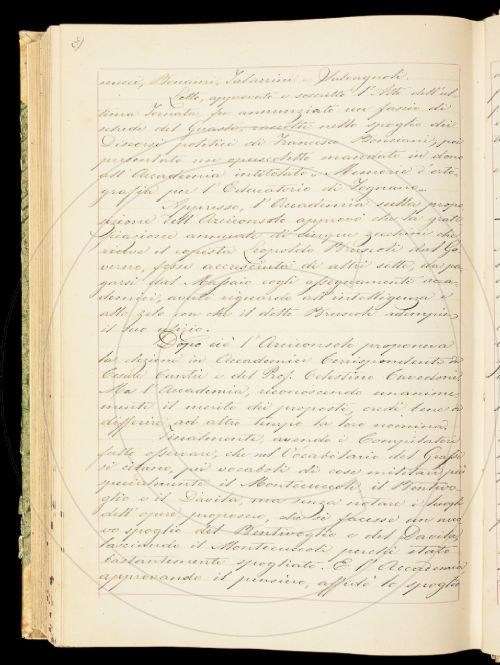 8)
nucci, Bencini, Tabarrini e Valvagnoli.
Letto, approvato e soscritto l'Atto dell'ul-
tima Tornata, fu annunziato un fascio di
schede del Guasti, raccolte nello spoglio dei
Discorsi politici di Francesco Bonsiani; poi
presentato un opuscoletto mandato in dono
all'Accademia intitolato „Memorie d'orto-
grafia per l'Educatorio di Fognano„
Appresso, l'Accademia sulla propo-
sizione dell'Arciconsolo approvò che la grati-
ficazione annuale di cinque zecchini che
riceve il copista Leopoldo Bruscoli dal Go-
verno, fosse accresciuta di altri sette, da pa-
garsi dal Massaio cogli assegnamenti acca-
demici, avuto riguardo all'intelligenza e
allo zelo con che il detto Bruscoli adempie
il suo ufizio.
Dopo ciò l'Arciconsolo proponeva
la elezione in Accademici Corrispondenti di
Cesare Cantù e del Prof. Celestino Cavedoni.
Ma l'Accademia, riconoscendo unanime-
mente il merito dei proposti, credè bene di
differire ad altro tempo la loro nomina.
Finalmente, avendo i Compilatori
fatto osservare, che nel Vocabolario del Grassi
si citano, pei vocaboli di cose militari, più
specialmente il Montecuccoli il Bentivo-
glio e il Davila, ma senza notare i luoghi
dell'opere, proposero, che si facesse un nuo-
vo spoglio del Bentivoglio e del Davila,
lasciando il Montecuccoli perchè stato
bastantemente spogliato. E l'Accademia
approvando il pensiero, affidò lo spoglio